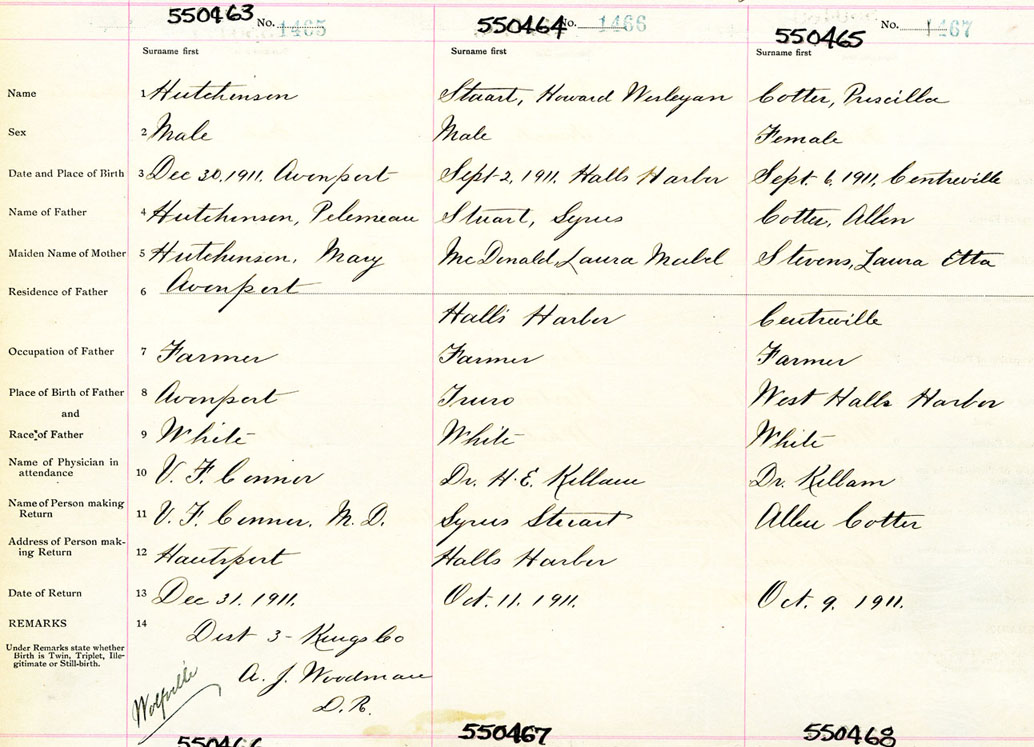 550463 No. 1465 550464 No. 1466 550465 No. 1467
Surname first Surname first Surname first
Name 1 Hutchinson Stuart, Howard Wesleyan Cotter, Priscilla
Sex 2 Male Male Female
Date and Place of Birth 3 Dec 30, 1911, Avonport Sept 2, 1911. Halls Harbor Sept. 6, 1911, Centreville
Name of Father 4 Hutchinson, Stuart, Syrus Cotter, Allen
Maiden Name of Mother 5 Hutchinson, Mary McDonald, Laura Mabel Stevens, Laura Etta
Residence of Father 6 Avonport
Halls Harbor Centreville
Occupation of Father 7 Farmer Farmer Farmer
Place of Birth of Father 8 Avonport Truro West Halls Harbor
and
Race of Father 9 White White White
Name of Physician in
attendance 10 V. F. Conner Dr. H. E. Killam Dr. Killam
Name of Person making
Return 11 V. F. Conner, M. D. Syrus Stuart Allen Cotter
Address of Person mak-
ing Return 12 Hantsport Halls Harbor
Date of Return 13 Dec 31. 1911. Oct. 11. 1911. Oct. 9. 1911.
REMARKS 14
Under Remarks state whether
Birth is Twin, Triplet, Ille-
gitimate or Still-birth.
Dist 3 - Kings Co
A. J. Woodman
D. R.
Wolfville
550466 550467 550468